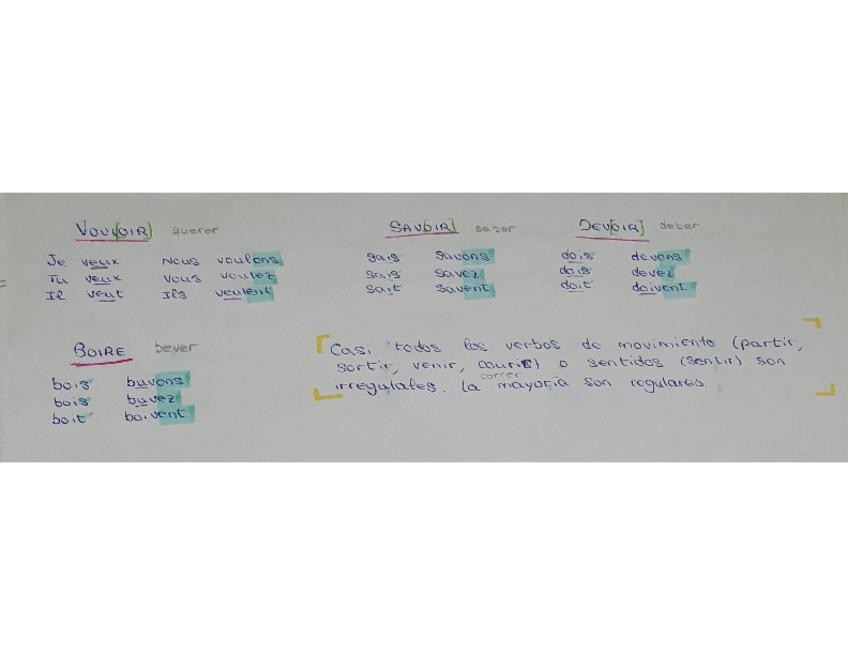 VOUL[OIR] querer
Je veux Nous voulons
Tu veux Vous voulez
Il veut Ils veulent
SAV[OIR] saber
sais savons
sais savez
sait savent
DEV[OIR] deber
dois devons
dois devez
doit doivent
BOIRE bever
bois buvons
bois buvez
boit boivent
Casi todos los verbos de movimiento (partir,
sortir, venir, courir) o sentidos (sentir) son
correr
irregulares. La mayoría son regulares.